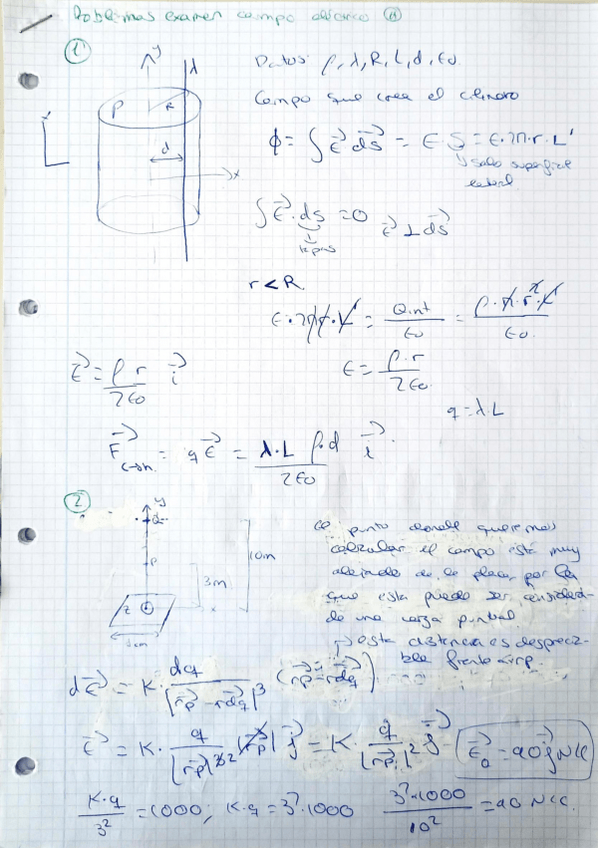 Problemas examen campo eléctrico
①
Datos: ρ, λ, R, L, d, εo.
y
λ
ρ
R
d
x
Campo que crea el cilindro
ϕ = ∫ E⃗ ds⃗ = E S = E·2π·r·L'
solo superficie
lateral
∫ E⃗·ds⃗ = 0 E⃗ ⊥ ds⃗
tapas
r < R.
E·2π·r·L' = Qint/εo = ρ·π·r²·L'/εo
E = ρ·r/2εo
E⃗ = ρ r/2εo i⃗
q = λ·L
F⃗ = qE⃗ = λ·L ρ·d/2εo i⃗
②
y
P
10m
3m
x
el punto donde queremos
calcular el campo está muy
alejado de la placa, por lo
que esta puede ser considerada
de una carga puntual
esta distancia es despreciable
frente a rp.
dE⃗ = K · dq/|r⃗p − r⃗dq|³ (r⃗p − r⃗dq)
E⃗ = K · q/|r⃗p|³² |r⃗p| j⃗ = K · q/|r⃗p|² j⃗
E⃗a = 90 j⃗ N/C
K·q/3² = 1000; K·q = 3²·1000 3²·1000/10² = 90 N/C.